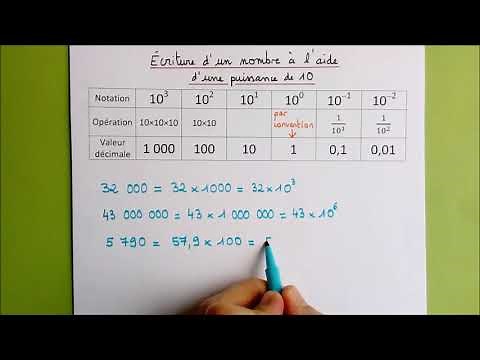 Écriture d'un nombre à l'aide
d'une puissance de 10
Notation 10³ 10² 10¹ 10⁰ 10⁻¹ 10⁻²
Opération 10×10×10 10×10 par convention ↓ 1/10¹ 1/10²
Valeur décimale 1 000 100 10 1 0,1 0,01
32 000 = 32 × 1000 = 32 × 10³
43 000 000 = 43 × 1 000 000 = 43 × 10⁶
5 790 = 57,9 × 100 =